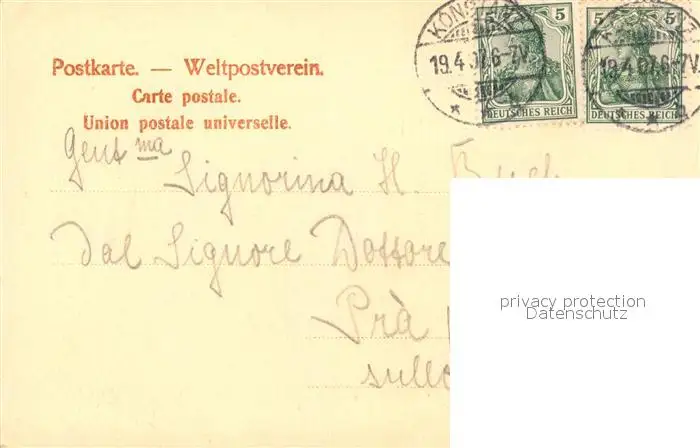 KONSTANZ
19.4.07.6-7V.
5 5
DEUTSCHES REICH
5 5
19.4.07.6-7V.
DEUTSCHES REICH
Postkarte. — Weltpostverein.
Carte postale.
Union postale universelle.
Gent ma
Signorina H.
dal Signore Dottore
Prà
sullo
privacy protection
Datenschutz